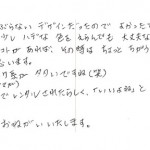 ぶらない デザインだったので よかったで
少し ハデな 色を えらんでも 大丈夫な
ストが あれば、その時は ちょっと ちがう
思います。
り方が タクレンですね(笑)
すが)
で レンタルされたらしく、「いいよね」と
おねがいいたします。